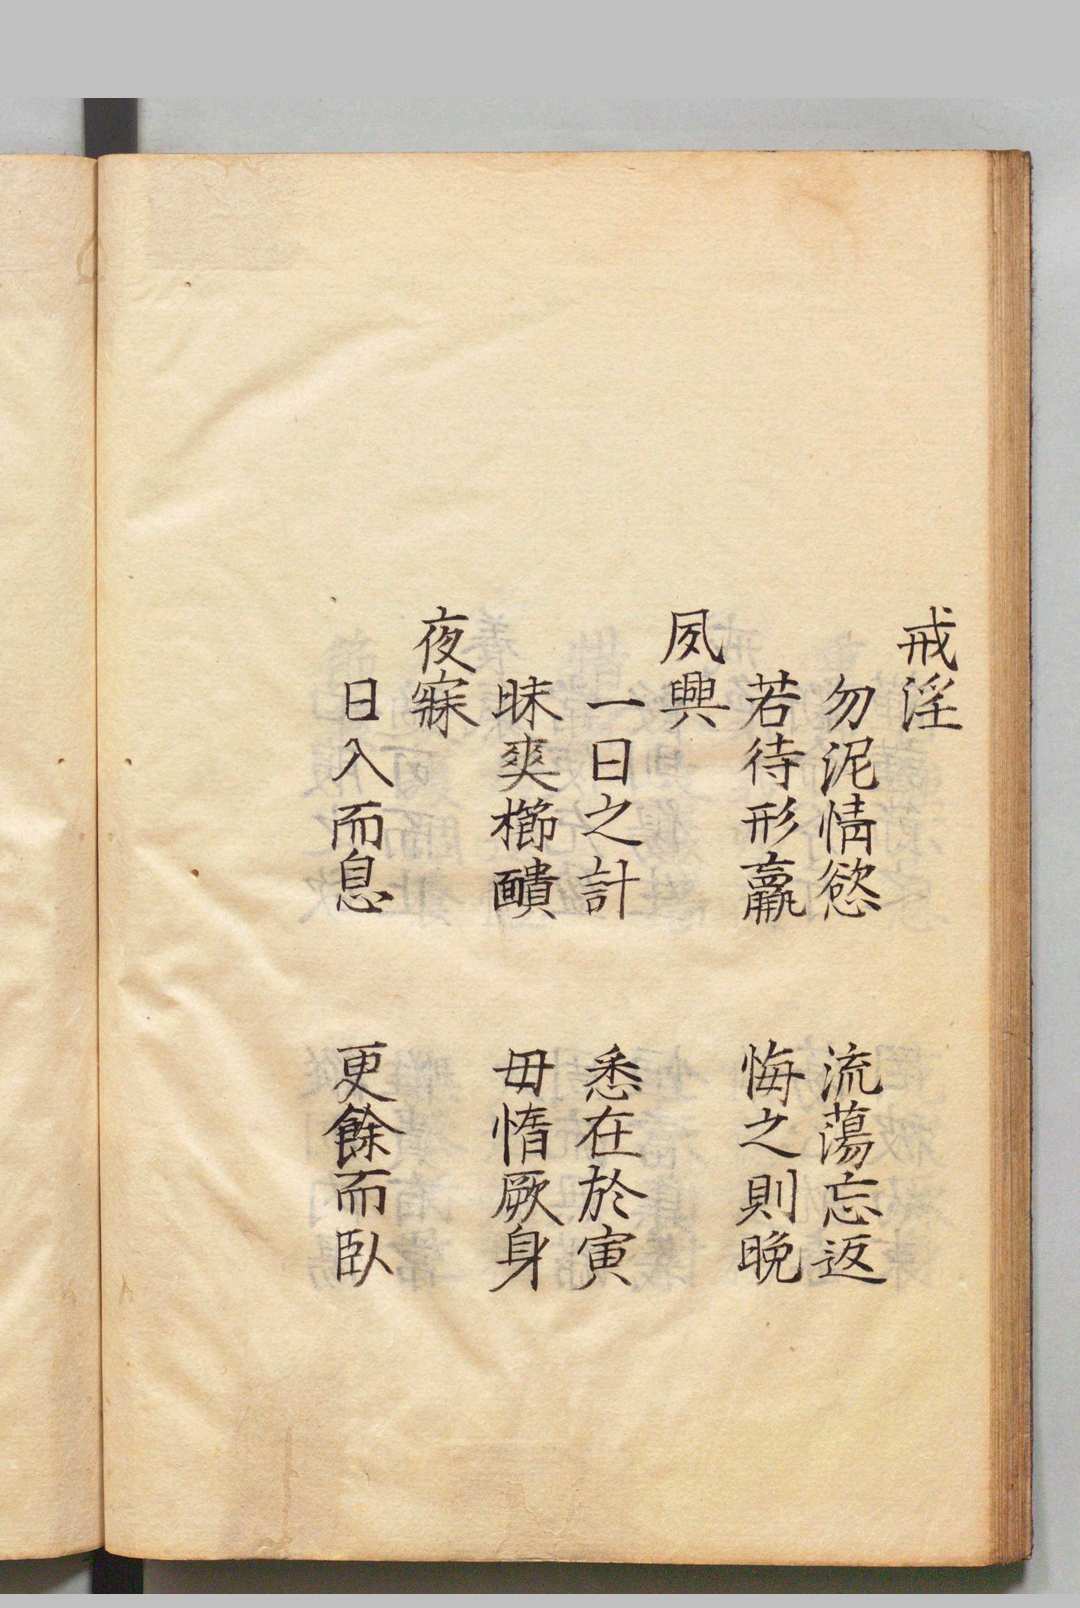 戒淫
勿泥情慾　流蕩忘返
若待形羸　悔之則晚
夙興
一日之計　悉在於寅
昧爽櫛靧　毋惰厥身
夜寐
日入而息　更餘而臥